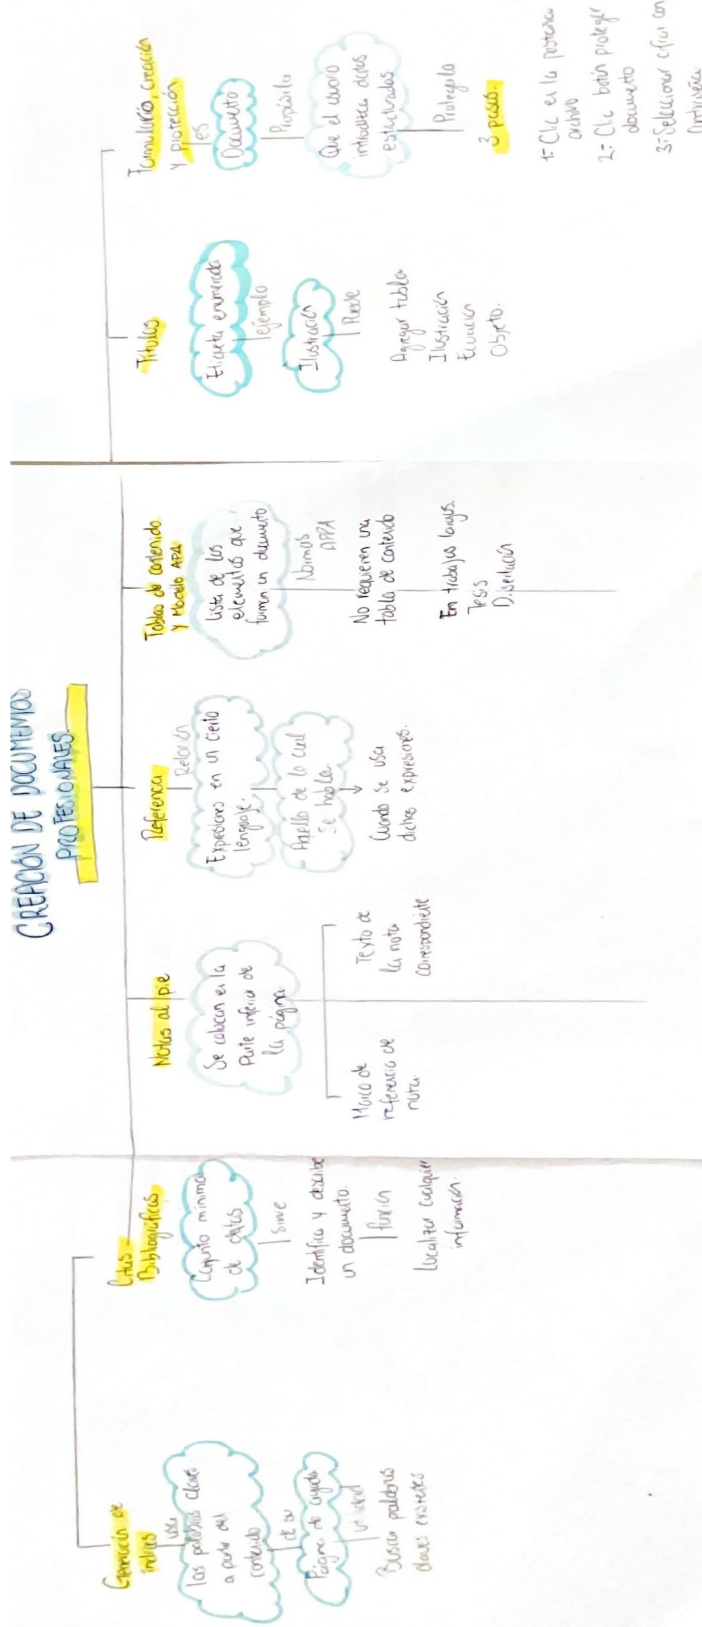 CREACIÓN DE DOCUMENTOS
PROFESIONALES
Generación de
índices
usa
las palabras claves
a partir del
contenido
de su
Página de ayuda
utilidad
Buscar palabras
claves
Citas
Bibliográficas
Conjunto mínimo
de datos
sirve
Identifica y describe
un documento.
función
Localizar cualquier
información.
Notas al pie
Se colocan en la
Parte inferior de
la página
Marco de
referencia de
nota.
Texto de
la nota
correspondiente
Referencia
Relación
Expresiones en un cierto
lenguaje.
Aquello de lo cual
se habla
Cuando se usa
dichas expresiones.
Tablas de contenido
y Modelo APA
Lista de los
elementos que
forman un documento
Normas
APPA
No requieren una
tabla de contenido
En trabajos largos.
Tesis
Disertación
Títulos
Etiqueta enumerada
ejemplo
Ilustración
Puede
Agregar tabla.
Ilustración
Ecuación
Objeto.
Formulario, creación
y protección
es
Documento
Propósito
Que el usuario
introduzca datos
estructurados
Protegerlo
3 pasos.
1- Clic en la pestaña
archivo
2- Clic botón proteger
documento
3- Seleccionar cifrar con
contraseña